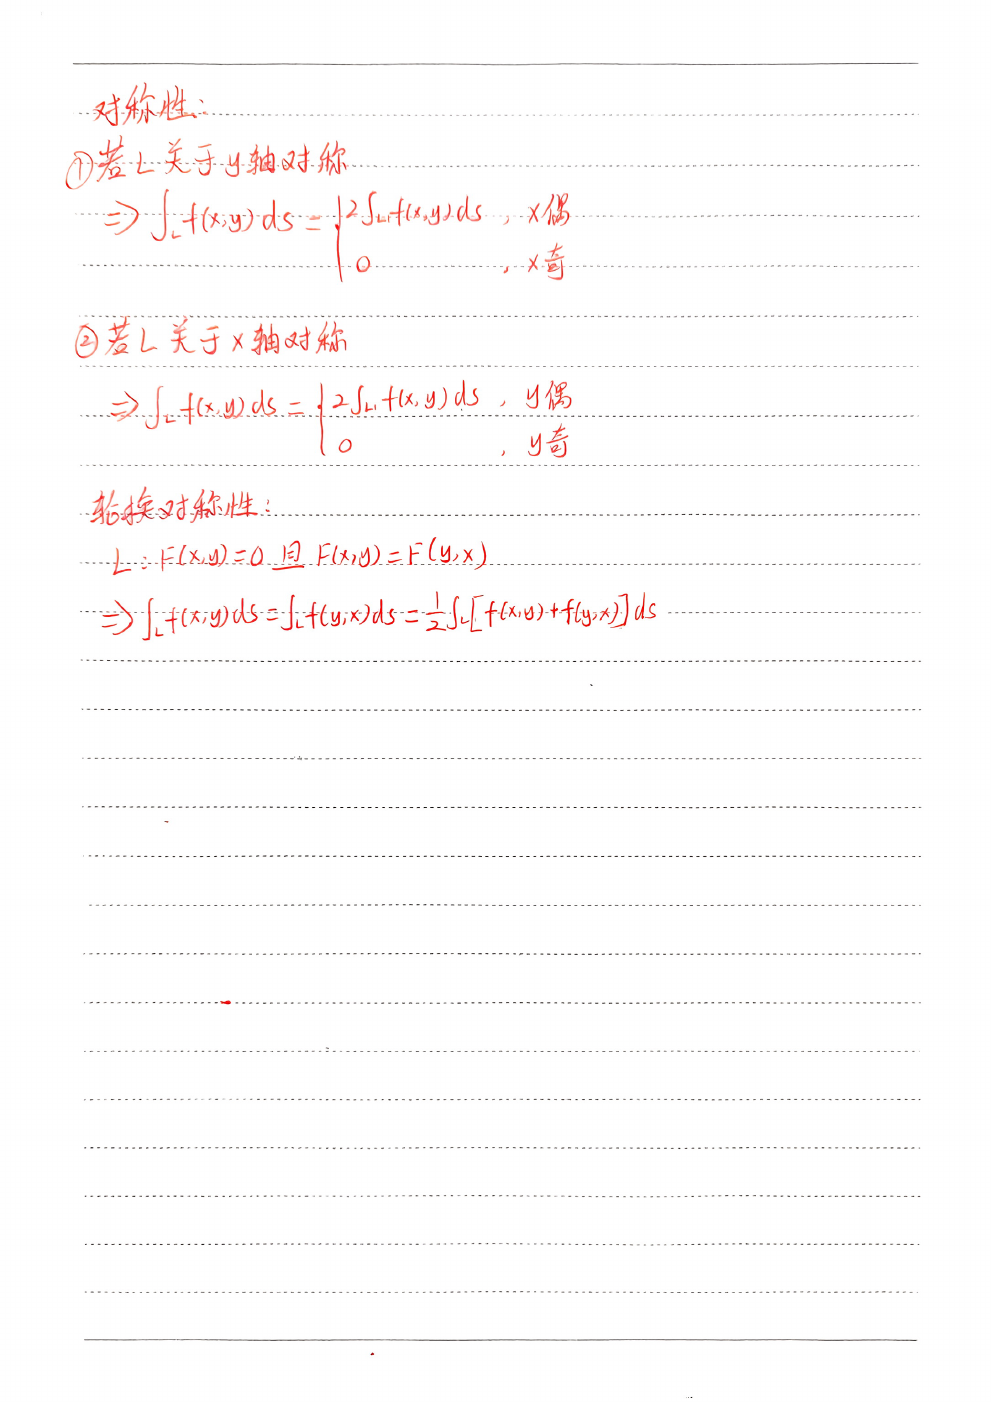 对称性:
①若L关于y轴对称
⇒∫_L f(x,y)ds={2∫_{L₁}f(x,y)ds, x偶
0, x奇
②若L关于x轴对称
⇒∫_L f(x,y)ds={2∫_{L₁}f(x,y)ds, y偶
0, y奇
轮换对称性:
L:F(x,y)=0且F(x,y)=F(y,x)
⇒∫_L f(x,y)ds=∫_L f(y,x)ds=½∫_L[f(x,y)+f(y,x)]ds